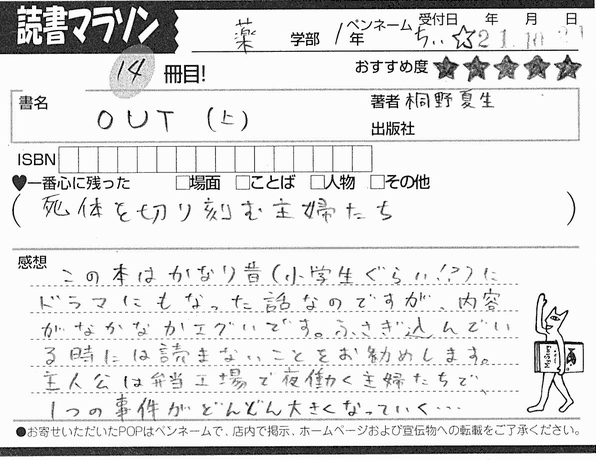 読書マラソン 薬 学部 1年 ペンネーム ちぃ☆ 受付日 年 月 日 21.10
14 冊目! おすすめ度 ★★★★★
書名 OUT (上) 著者 桐野夏生
出版社
ISBN
♥一番心に残った □場面 □ことば □人物 □その他
(死体を切り刻む主婦たち)
感想
この本はかなり昔(小学生ぐらい!?)に
ドラマにもなった話なのですが、内容
がなかなかエグいです。ふさぎ込んでい
る時には読まないことをお勧めします。
主人公は弁当工場で夜働く主婦たちで、
1つの事件がどんどん大きくなっていく…
●お寄せいただいたPOPはペンネームで、店内で掲示、ホームページおよび宣伝物への転載をご了承ください。